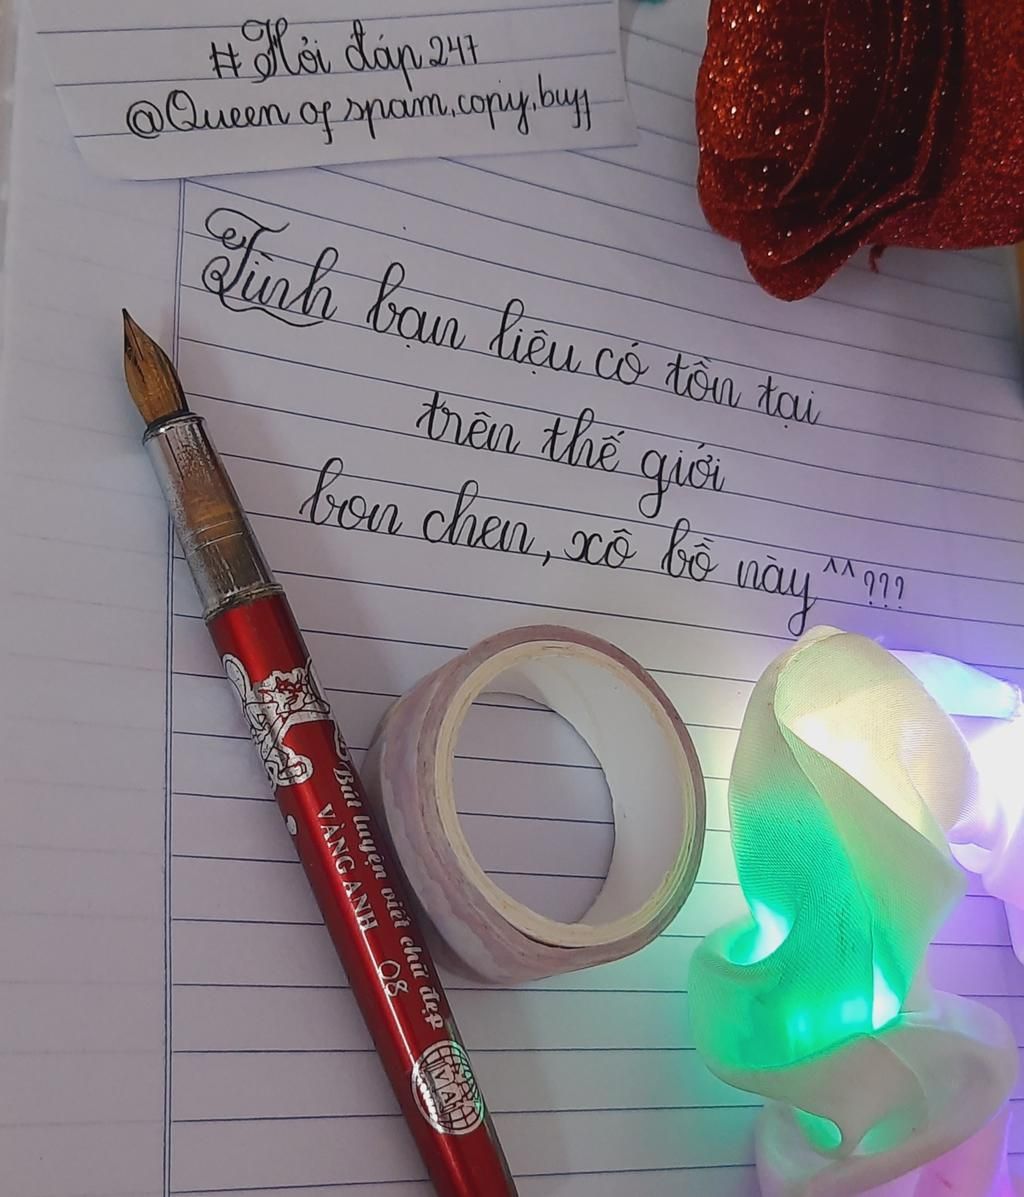 #Hỏi đáp 247
@Queen of spam,copy,buff
Tình bạn liệu có tồn tại
trên thế giới
bon chen, xô bồ này^^???
Bút luyện viết chữ đẹp
VÀNG ANH 08